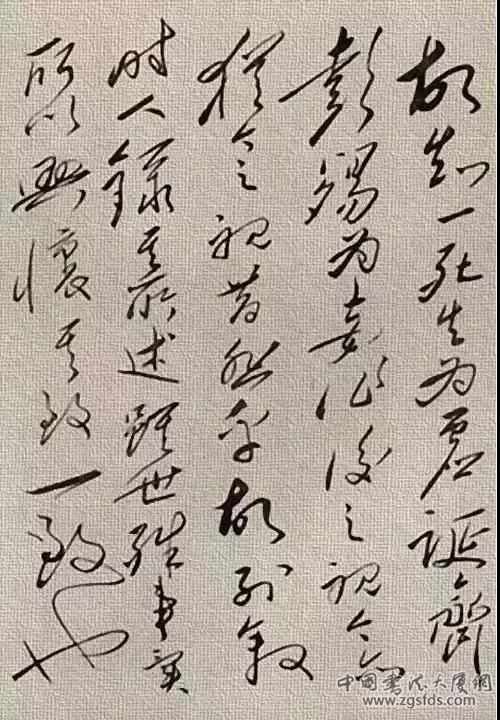 故知一死生为虚诞齐
彭殇为妄作後之视今亦
猶今之視昔悲乎故列叙
时人録其所述雖世殊事異
所以興懷其致一致也
中国书法大厦网
www.zgsfds.com